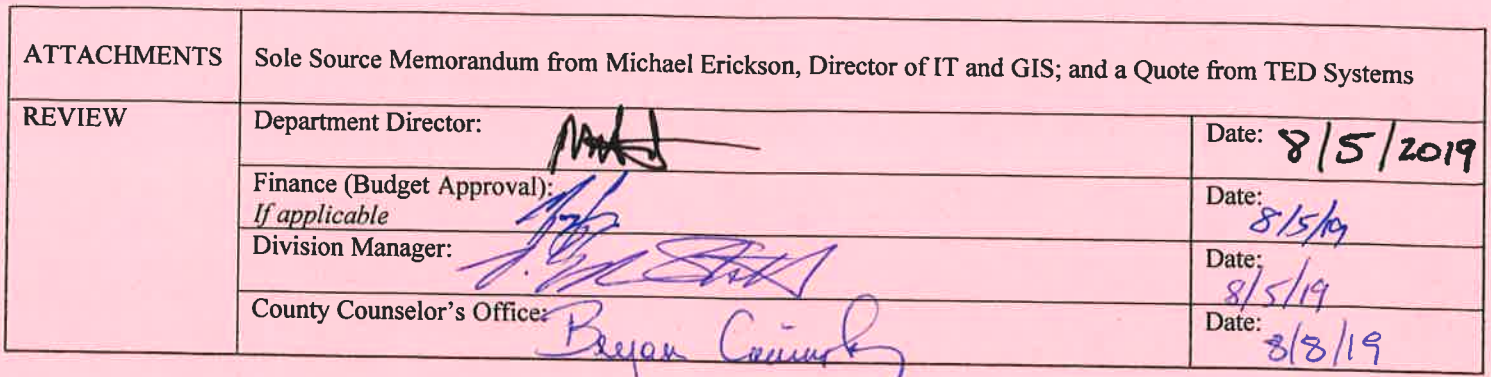 ATTACHMENTS
Sole Source Memorandum from Michael Erickson, Director of IT and GIS; and a Quote from TED Systems
REVIEW
Department Director:
Date: 8/5/2019
Finance (Budget Approval):
If applicable
Date: 8/5/19
Division Manager:
Date: 8/5/19
County Counselor's Office: Bryan
Date: 8/8/19